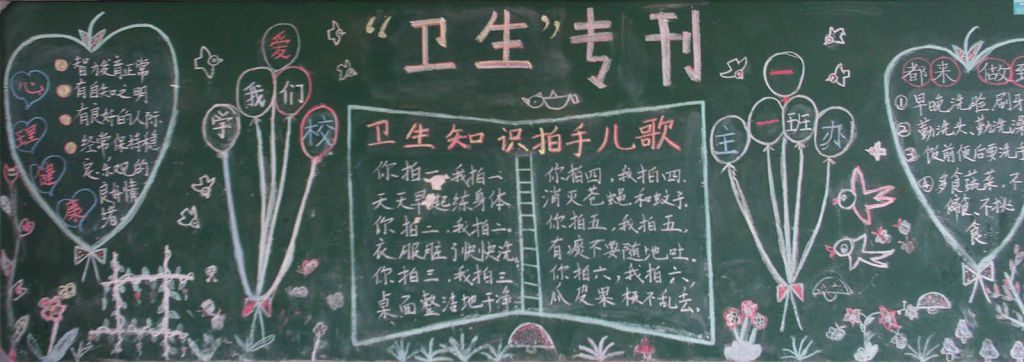 “卫生”专刊
心理健康
智力发育正常
有自知之明
有良好的人际
经常保持稳
良、乐观的
良好情
绪
爱
我们
学校
卫生知识拍手儿歌
你拍一,我拍一
天天早起练身体
你拍二,我拍二,
衣服脏了快快洗,
你拍三,我拍三
桌面整洁地干净
你拍四,我拍四.
消灭苍蝇和蚊子.
你拍五,我拍五.
有痰不要随地吐.
你拍六,我拍六,
瓜皮果核不乱丢.
一
一班
主办
都来 做到
①早晚洗脸刷牙
②勤洗头、勤洗澡
③饭前便后要洗手
④多食蔬菜,不
偏食、不挑
食